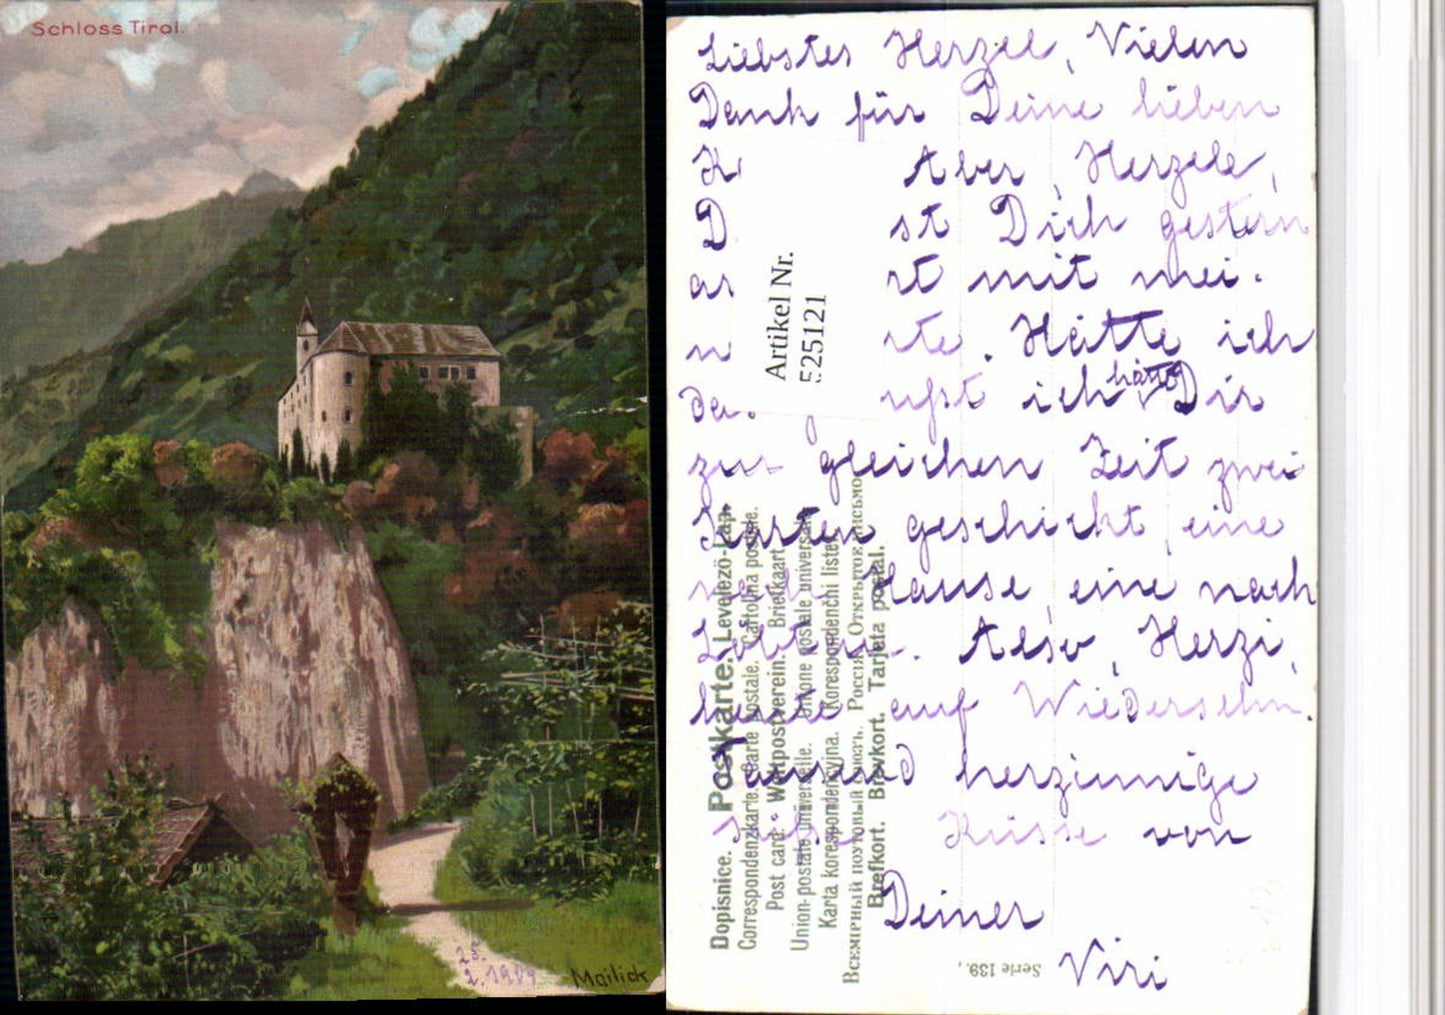 Schloss Tirol.
23.
2.1909
Mailick
Liebstes Herzel, Vielen
Dank für Deine lieben
K Aber, Herzele,
D st Dich gestern
ar rt mit mei-
n rte. Hätte ich
da ußt ich hätte Dir
zur gleichen Zeit zwei
Karten geschickt, eine
nach Hause, eine nach
Also, Herzi,
heute auf Wiedersehn.
Tausend herzinnige
süße Küsse von
Deiner
Viri
Artikel Nr.
525121
Dopisnice. Postkarte. Levelező-Lap.
Correspondenzkarte. Carte postale. Cartolina postale.
Post card. Weltpostverein. Briefkaart.
Union postale universelle. Unione postale universale
Karta korespondencyjna. Korespondenčni listek
Всемірный почтовый союзъ. Россія. Открытое письмо
Brefkort. Brevkort. Tarjeta postal.
Serie 139.